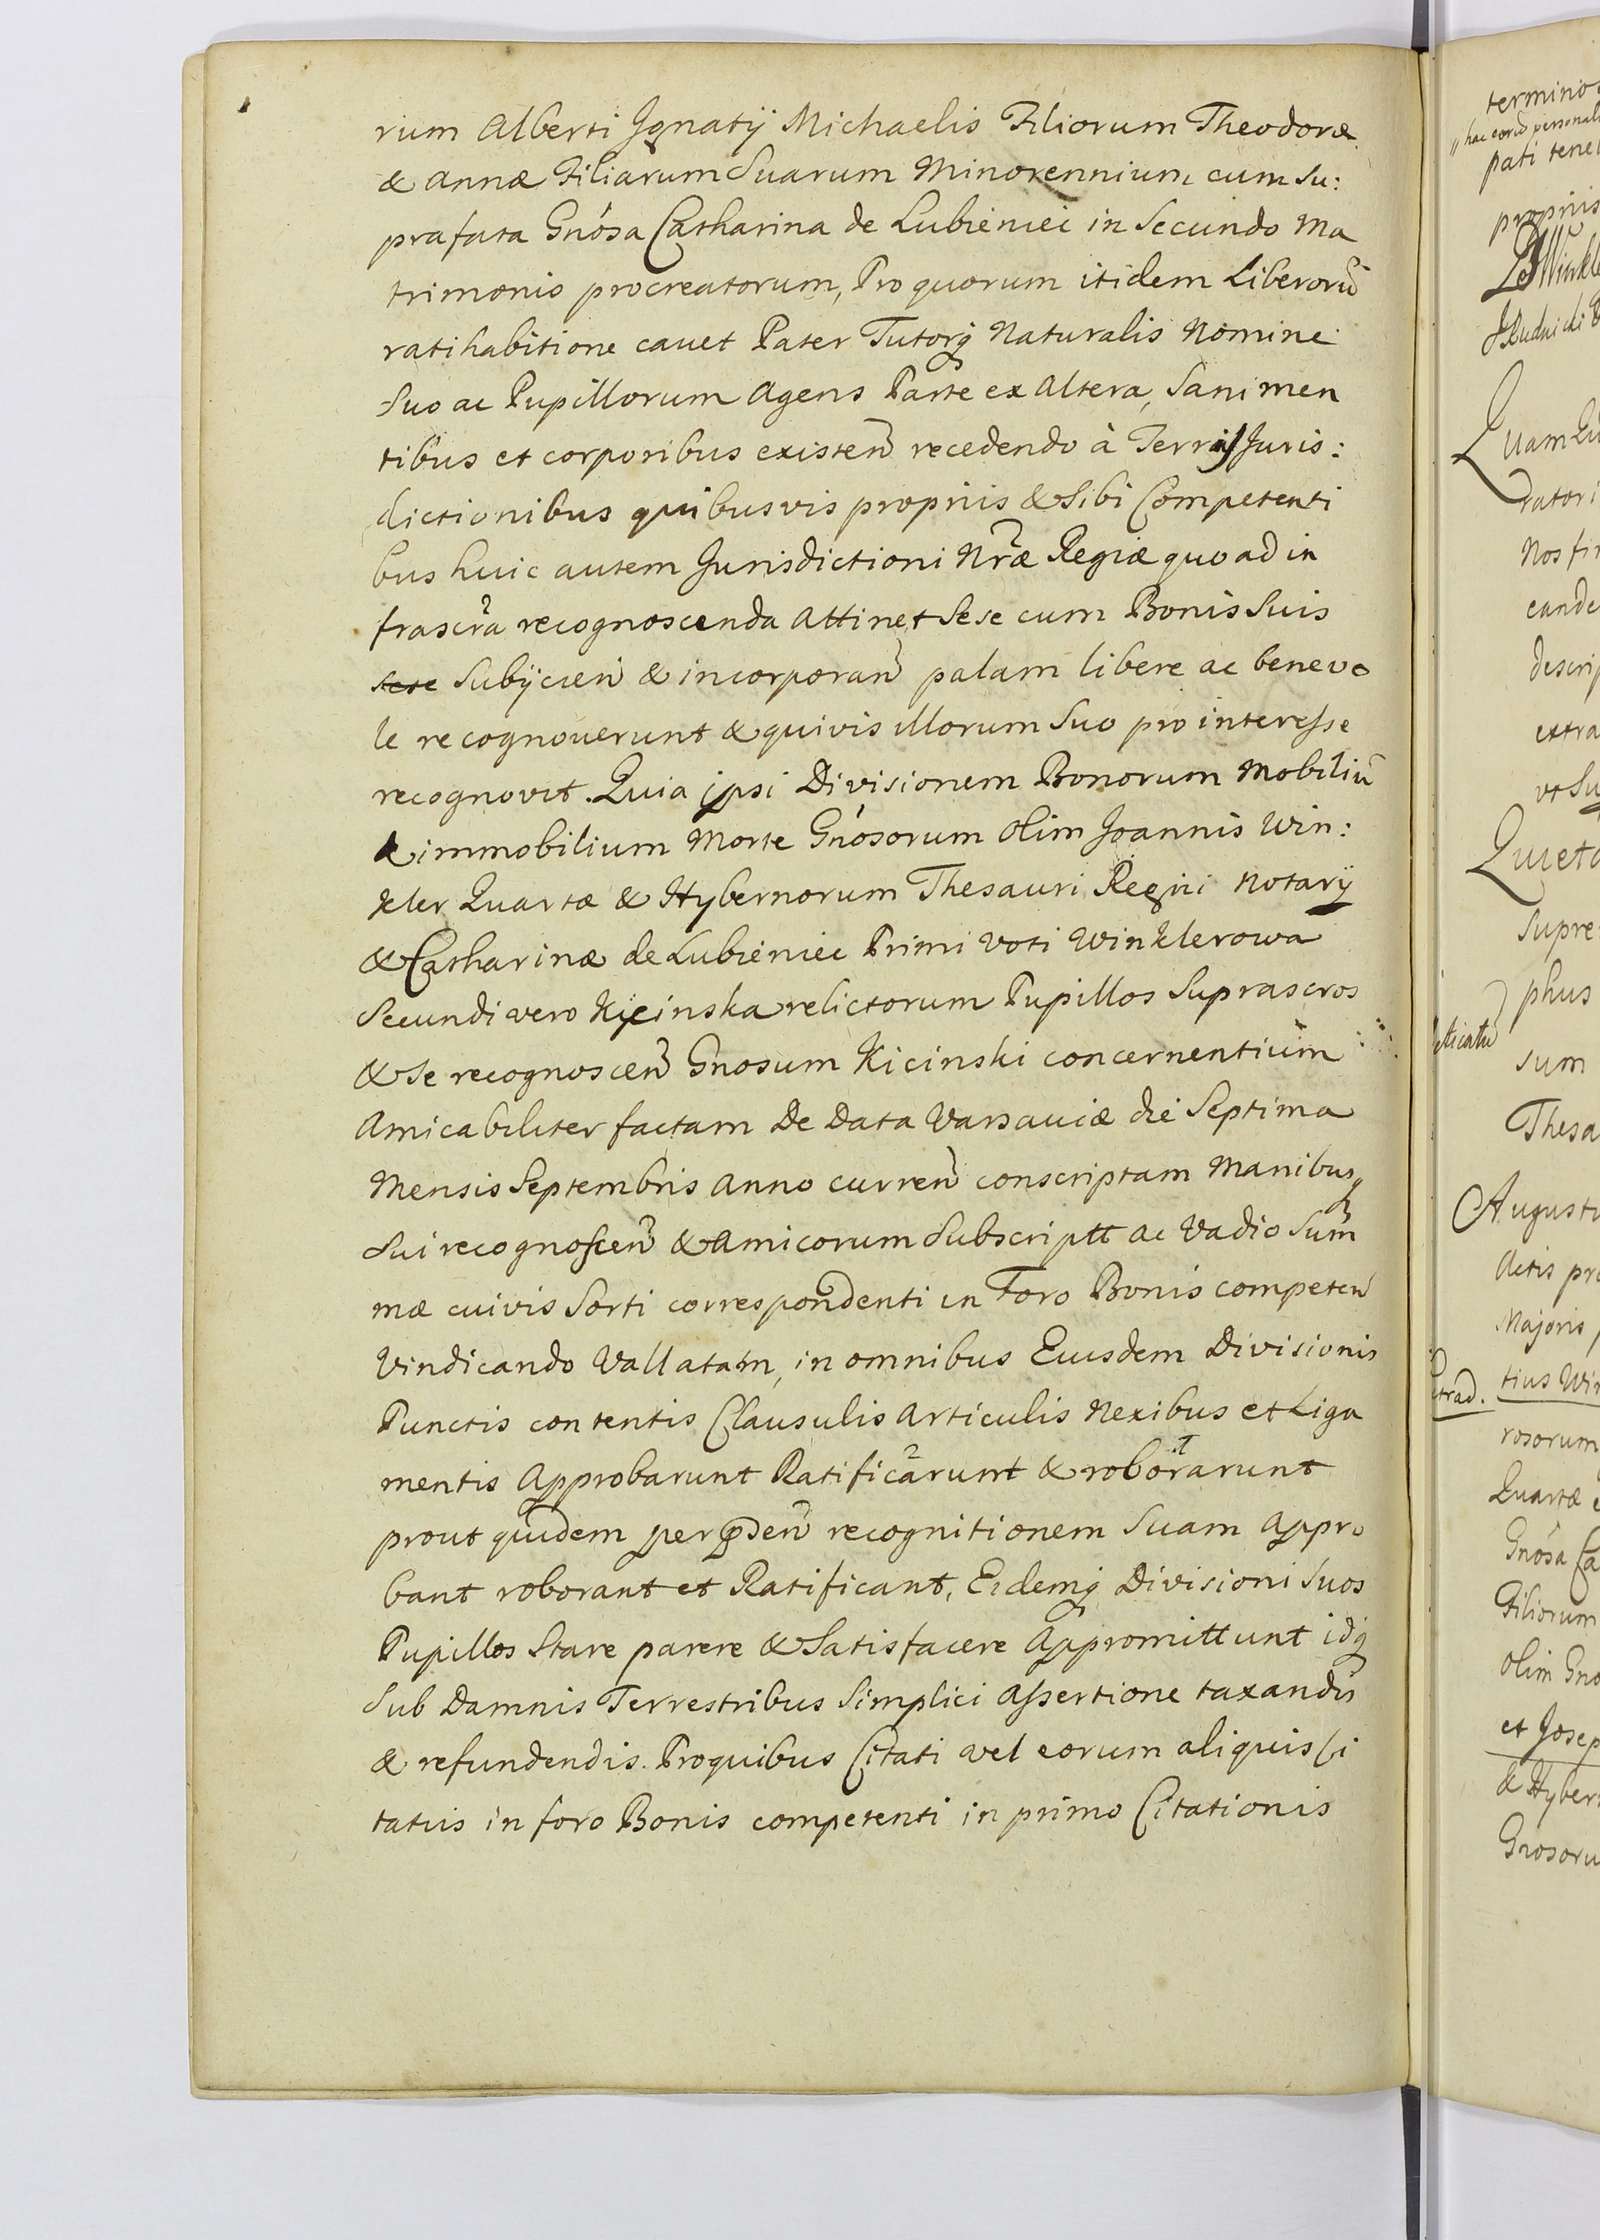 rum Alberti Ignatij Michaelis Filiorum Theodoræ
& Annæ Filiarum Suarum Minorennium cum su:
prafata Gnosa Catharina de Lubieniec in Secundo Ma
trimonio procreatorum, Pro quorum itidem Liberorũ
ratihabitione cavet Pater Tutorq́ Naturalis Nomine
Suo ac Pupillorum Agens Parte ex Altera, Sani men
tibus et corporibus existeñ recedendo à Terris Juris:
dictionibus quibusvis proprijs & Sibi Competenti
bus huic autem Jurisdictioni Nr̃æ Regiæ quo ad in
frascr̃a recognoscenda Attinet Sese cum Bonis Suis
sese Subijcieñ & incorporañ palam libere ac benevo
le recognoverunt & quivis illorum Suo pro interesse
recognovit. Quia ipsi Divisionem Bonorum Mobiliũ
& immobilium Morte Gnosorum Olim Joannis Win:
kler Quartæ & Hybernorum Thesauri Regni Notarij
& Catharinæ de Lubieniec Primi Voti Winklerowa
Secundi vero Kicinska relictorum Pupillos Suprascros
& Se recognosceñ Gnosum Kicinski concernentium
Amicabiliter factam De Data Varsaviæ die Septima
Mensis Septembris Anno curreñ conscriptam Manibusq́
Sui recognosceñ & Amicorum Subscriptt ac Vadio Sum̃
mæ cuivis Sorti correspondenti in Foro Bonis competeñ
Vindicando Vallatam, in omnibus Eiusdem Divisionis
Punctis contentis Clausulis Articulis Nexibus et Liga
mentis Approbarunt Ratificarunt & roborarunt
prout quidem per p̃deñ recognitionem Suam Appro
bant roborant et Ratificant, Eidemq́ Divisioni Suos
Pupillos Stare parere & Satisfacere Appromittunt idq́
Sub Damnis Terrestribus Simplici Assertione taxandis
& refundendis. Pro quibus Citati vel eorum aliquis Ci
tatus in foro Bonis competenti in primo Citationis
termino
pati tene
proprijs
Nos fi
extra
Quieta
Supre
phus
sum
Thesa
August
Actis pr
Majoris
tius Win
rosorum
Quartæ
Gnosa Ca
Filiorum
Olim Gno
et Josep
& Hyber
Gnosoru